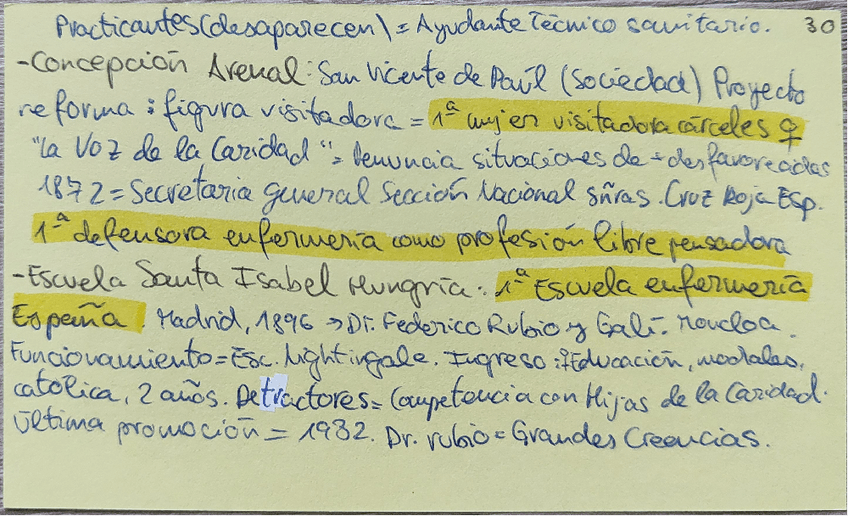 Practicantes (desaparecen) = Ayudante Técnico sanitario. 30
-Concepción Arenal: San Vicente de Paúl (sociedad) Proyecto
reforma: figura visitadora = 1ª mujer visitadora cárceles ♀
"La Voz de la Caridad" = Denuncia situaciones de + desfavorecidas
1872 = Secretaria general Sección Nacional Sñras. Cruz Roja Esp.
1ª defensora enfermería como profesión libre pensadora
-Escuela Santa Isabel Hungría: 1ª Escuela enfermería
España. Madrid, 1896 → Dr. Federico Rubio y Galí. Moncloa.
Funcionamiento = Esc. Nightingale. Ingreso: Educación, modales,
católica, 2 años. Detractores = Competencia con Hijas de la Caridad.
Última promoción = 1932. Dr. rubio = Grandes Creencias.